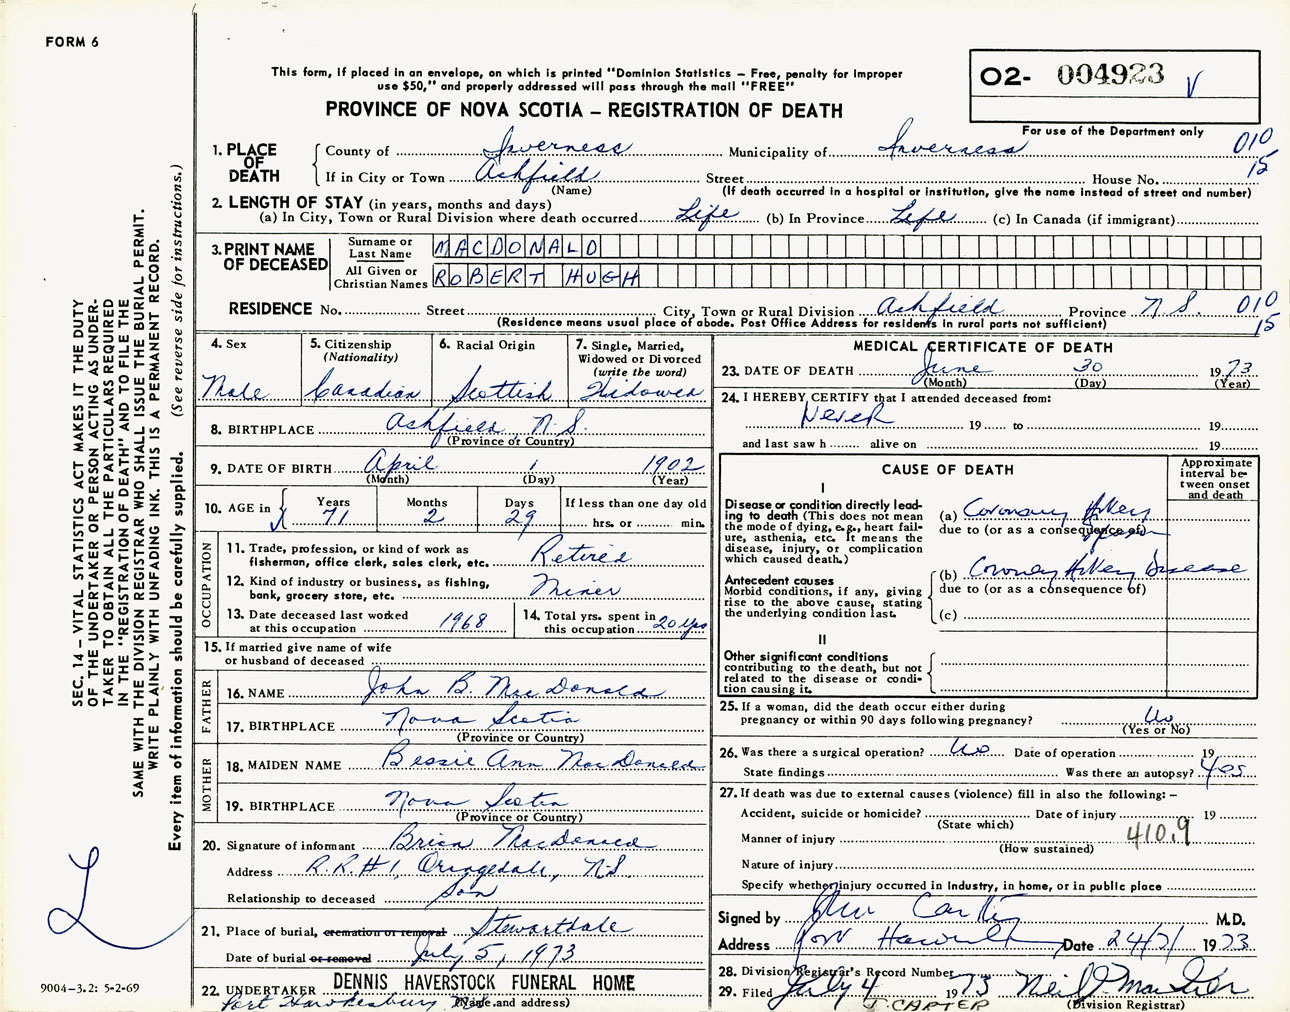 FORM 6
O2- 004923
For use of the Department only
This form, if placed in an envelope, on which is printed "Dominion Statistics – Free, penalty for improper
use $50," and properly addressed will pass through the mail "FREE"
PROVINCE OF NOVA SCOTIA – REGISTRATION OF DEATH
SEC. 14 – VITAL STATISTICS ACT MAKES IT THE DUTY
OF THE UNDERTAKER OR PERSON ACTING AS UNDER-
TAKER TO OBTAIN ALL THE PARTICULARS REQUIRED
IN THE "REGISTRATION OF DEATH" AND TO FILE THE
SAME WITH THE DIVISION REGISTRAR WHO SHALL ISSUE THE BURIAL PERMIT.
WRITE PLAINLY WITH UNFADING INK. THIS IS A PERMANENT RECORD.
Every item of information should be carefully supplied. (See reverse side for instructions.)
1. PLACE OF DEATH
County of Inverness Municipality of Inverness 010
If in City or Town Ashfield Street House No. 15
(Name) (If death occurred in a hospital or institution, give the name instead of street and number)
2. LENGTH OF STAY (in years, months and days)
(a) In City, Town or Rural Division where death occurred Life (b) In Province Life (c) In Canada (if immigrant)
3. PRINT NAME OF DECEASED
Surname or Last Name MACDONALD
All Given or Christian Names ROBERT HUGH
RESIDENCE No. Street City, Town or Rural Division Ashfield Province N.S. 010
(Residence means usual place of abode. Post Office Address for residents in rural parts not sufficient) 15
4. Sex Male
5. Citizenship (Nationality) Canadian
6. Racial Origin Scottish
7. Single, Married, Widowed or Divorced (write the word) Widowed
8. BIRTHPLACE Ashfield N.S.
(Province or Country)
9. DATE OF BIRTH April 1 1902
(Month) (Day) (Year)
10. AGE in Years 71 Months 2 Days 29 If less than one day old
hrs. or min.
OCCUPATION
11. Trade, profession, or kind of work as
fisherman, office clerk, sales clerk, etc. Retired
12. Kind of industry or business, as fishing,
bank, grocery store, etc. Miner
13. Date deceased last worked
at this occupation 1968
14. Total yrs. spent in
this occupation 20 yrs
15. If married give name of wife
or husband of deceased
FATHER
16. NAME John B. MacDonald
17. BIRTHPLACE Nova Scotia
(Province or Country)
MOTHER
18. MAIDEN NAME Bessie Ann MacDonald
19. BIRTHPLACE Nova Scotia
(Province or Country)
20. Signature of informant Brian MacDonald
Address R.R.#1, Orangedale, N-S
Relationship to deceased Son
21. Place of burial, cremation or removal Stewartdale
Date of burial or removal July 5, 1973
22. UNDERTAKER DENNIS HAVERSTOCK FUNERAL HOME
Port Hawkesbury, N.S. (Name and address)
9004-3.2: 5-2-69
MEDICAL CERTIFICATE OF DEATH
23. DATE OF DEATH June 30 1973
(Month) (Day) (Year)
24. I HEREBY CERTIFY that I attended deceased from:
Never 19 to 19
and last saw h alive on 19
CAUSE OF DEATH
Approximate interval between onset and death
I
Disease or condition directly lead-
ing to death (This does not mean
the mode of dying, e.g., heart fail-
ure, asthenia, etc. It means the
disease, injury, or complication
which caused death.)
(a) Coronary Artery
due to (or as a consequence of)
Antecedent causes
Morbid conditions, if any, giving
rise to the above cause, stating
the underlying condition last.
(b) Coronary Artery Disease
due to (or as a consequence of)
(c)
II
Other significant conditions
contributing to the death, but not
related to the disease or condi-
tion causing it.
25. If a woman, did the death occur either during
pregnancy or within 90 days following pregnancy? No
(Yes or No)
26. Was there a surgical operation? No Date of operation 19
State findings Was there an autopsy? Yes
27. If death was due to external causes (violence) fill in also the following: –
Accident, suicide or homicide? Date of injury 19
(State which)
Manner of injury 410.9
(How sustained)
Nature of injury
Specify whether injury occurred in industry, in home, or in public place
Signed by M.D.
Address Port Date 1973
28. Division Registrar's Record Number
29. Filed July 4 1973
J. CARTER (Division Registrar)